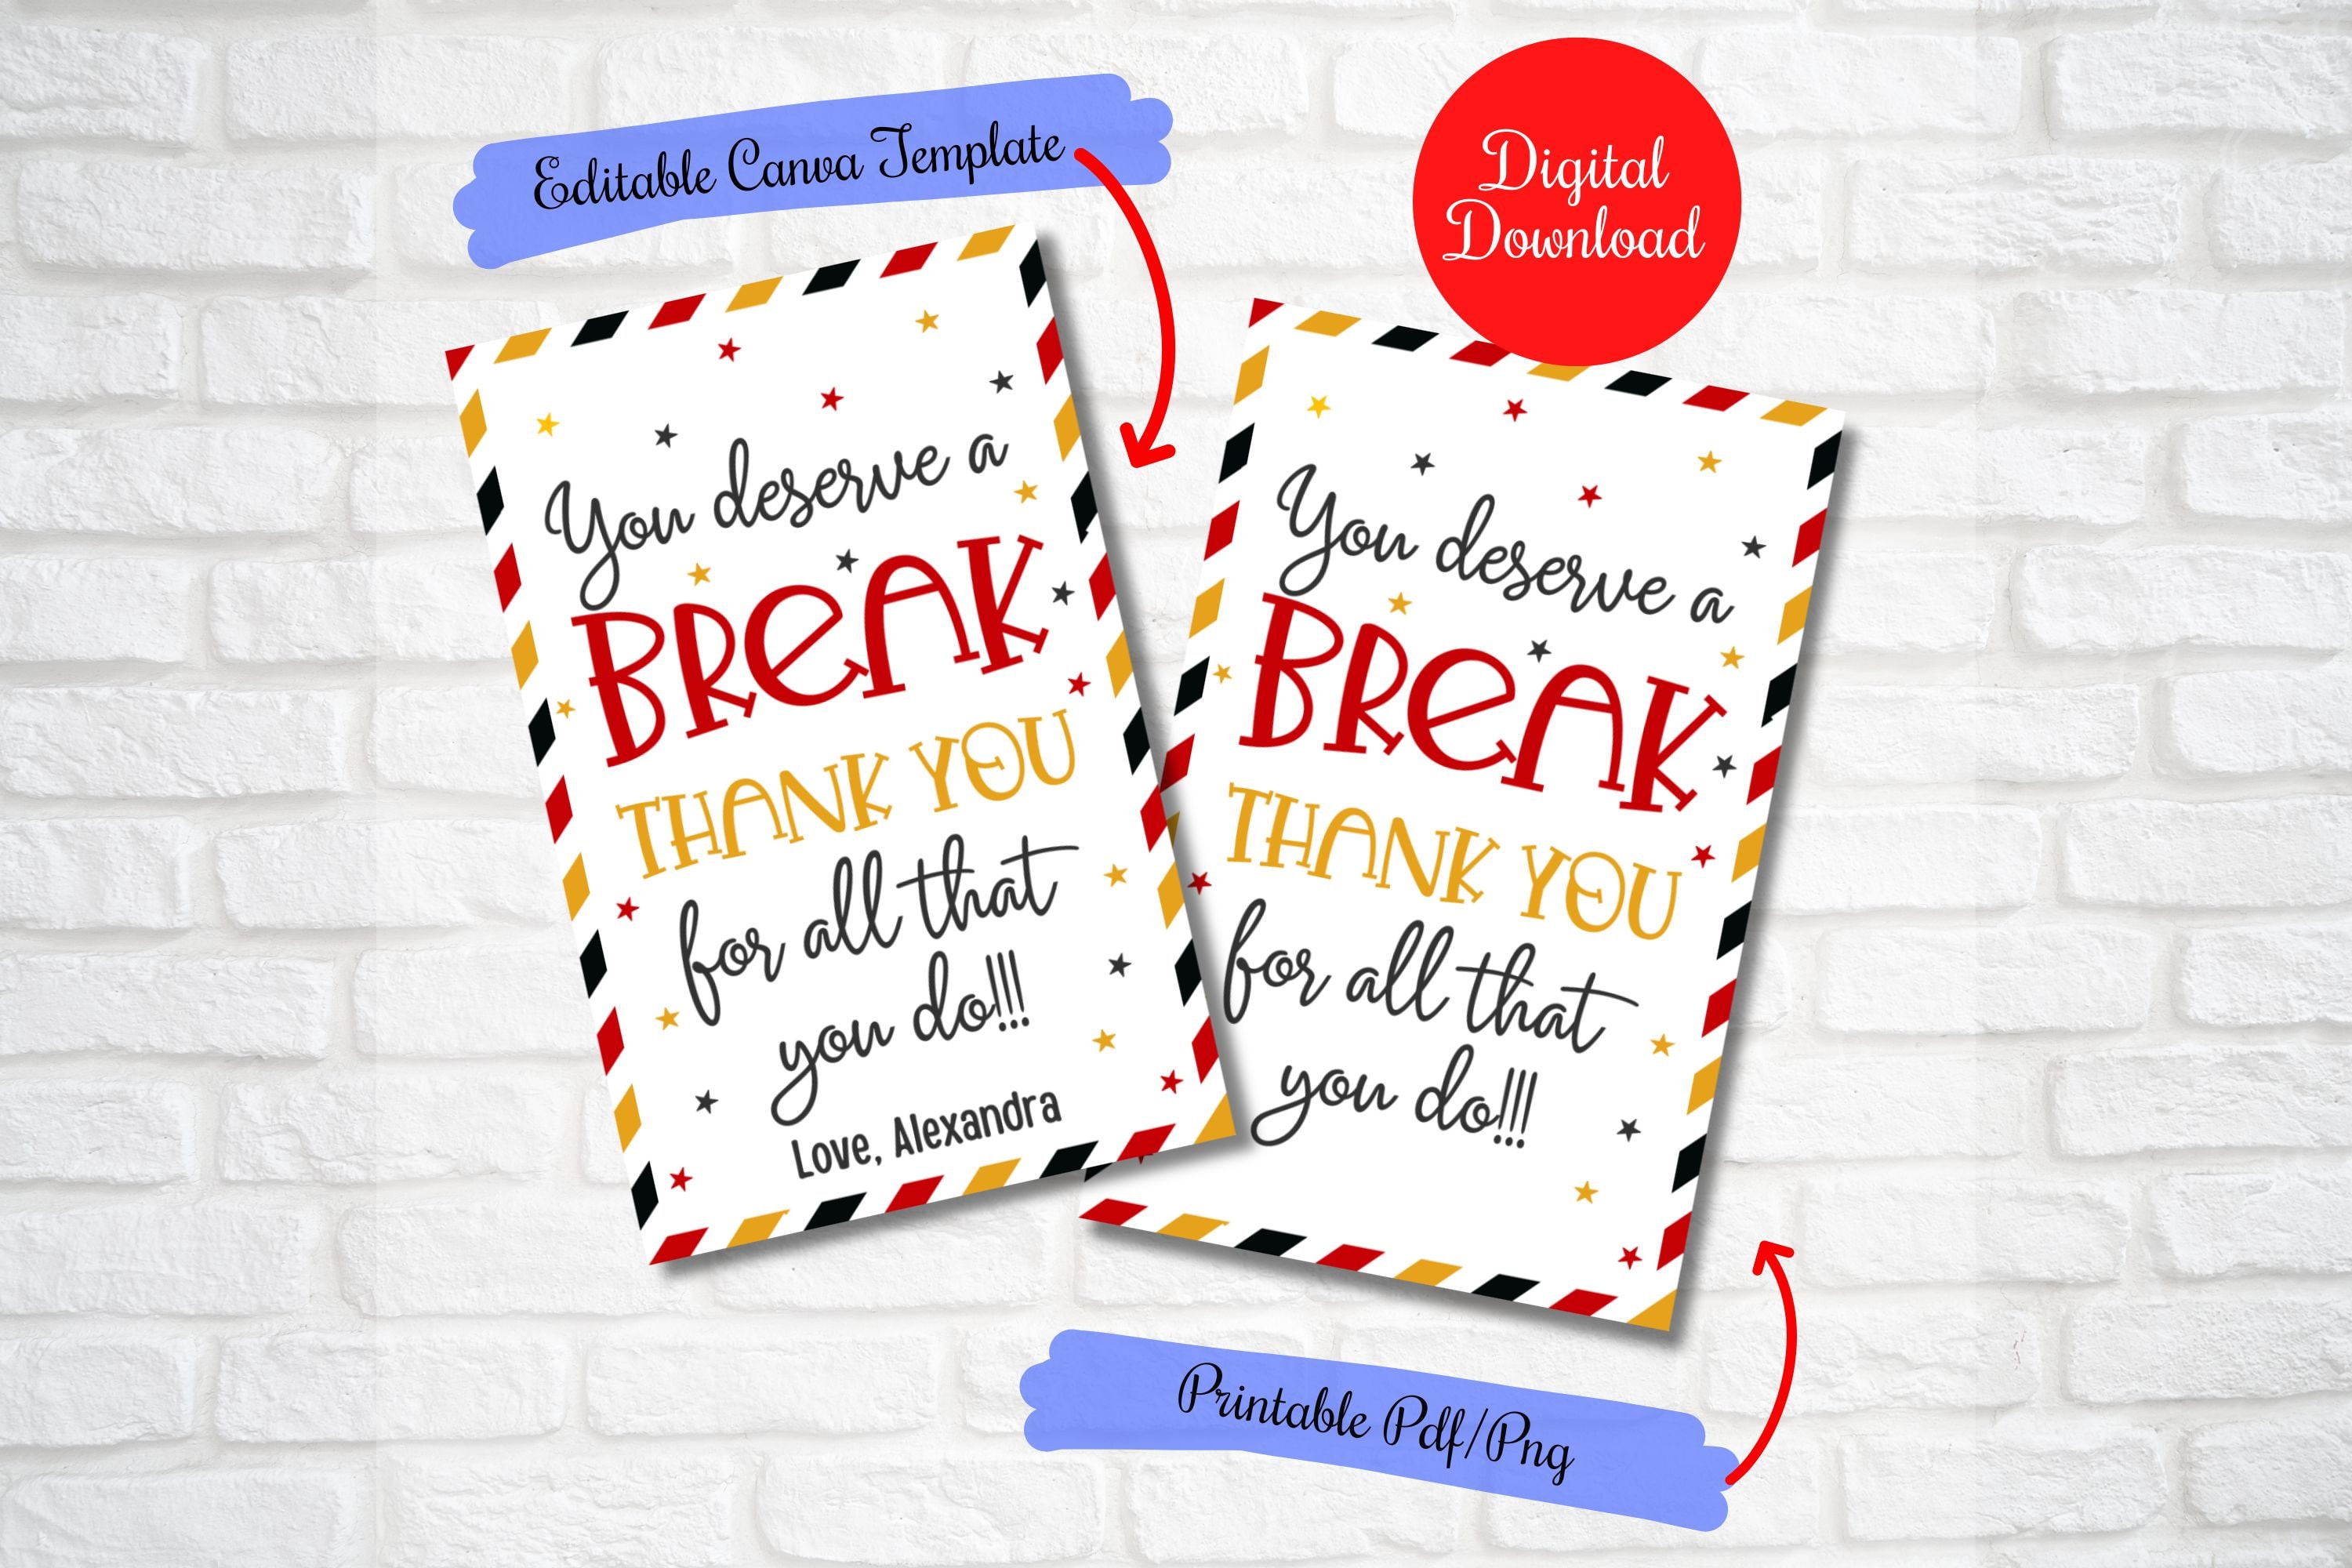 Editable Canva Template
Digital
Download
You deserve a
BREAK
THANK YOU
for all that
you do!!!
Love, Alexandra
You deserve a
BREAK
THANK YOU
for all that
you do!!!
Printable Pdf/Png